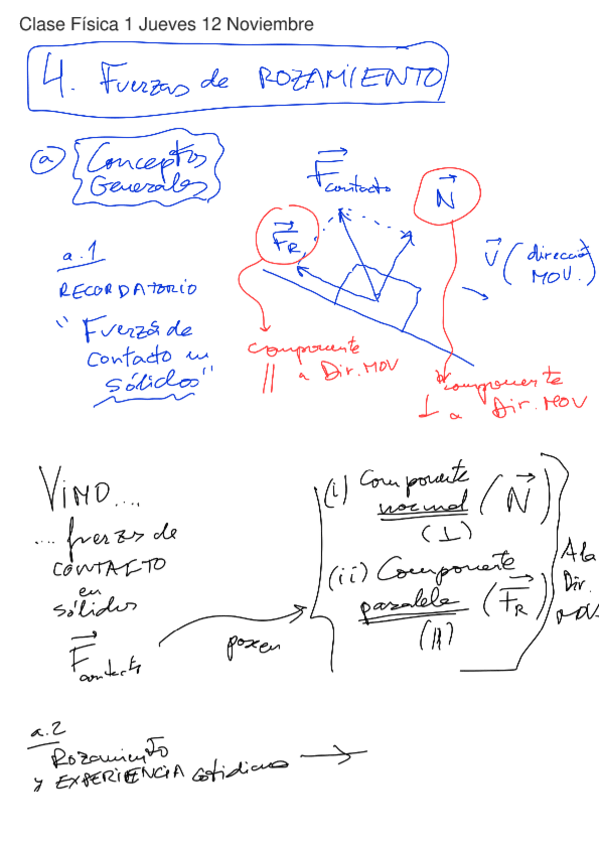 Clase Física 1 Jueves 12 Noviembre
4. Fuerzas de ROZAMIENTO
a) Conceptos
Generales
a.1
RECORDATORIO
"Fuerzas de
contacto en
sólidos"
F contacto
N
FR
V (dirección
MOV.)
componente
|| a Dir. MOV
componente
⊥ a Dir. MOV
VIMO....
.... fuerzas de
CONTACTO
en
sólidos
F contacto
poseen
(i) Componente
normal (N)
(⊥)
(ii) Componente
paralela (FR)
(||)
A la
Dir.
a.2
Rozamiento
y EXPERIENCIA cotidiana →